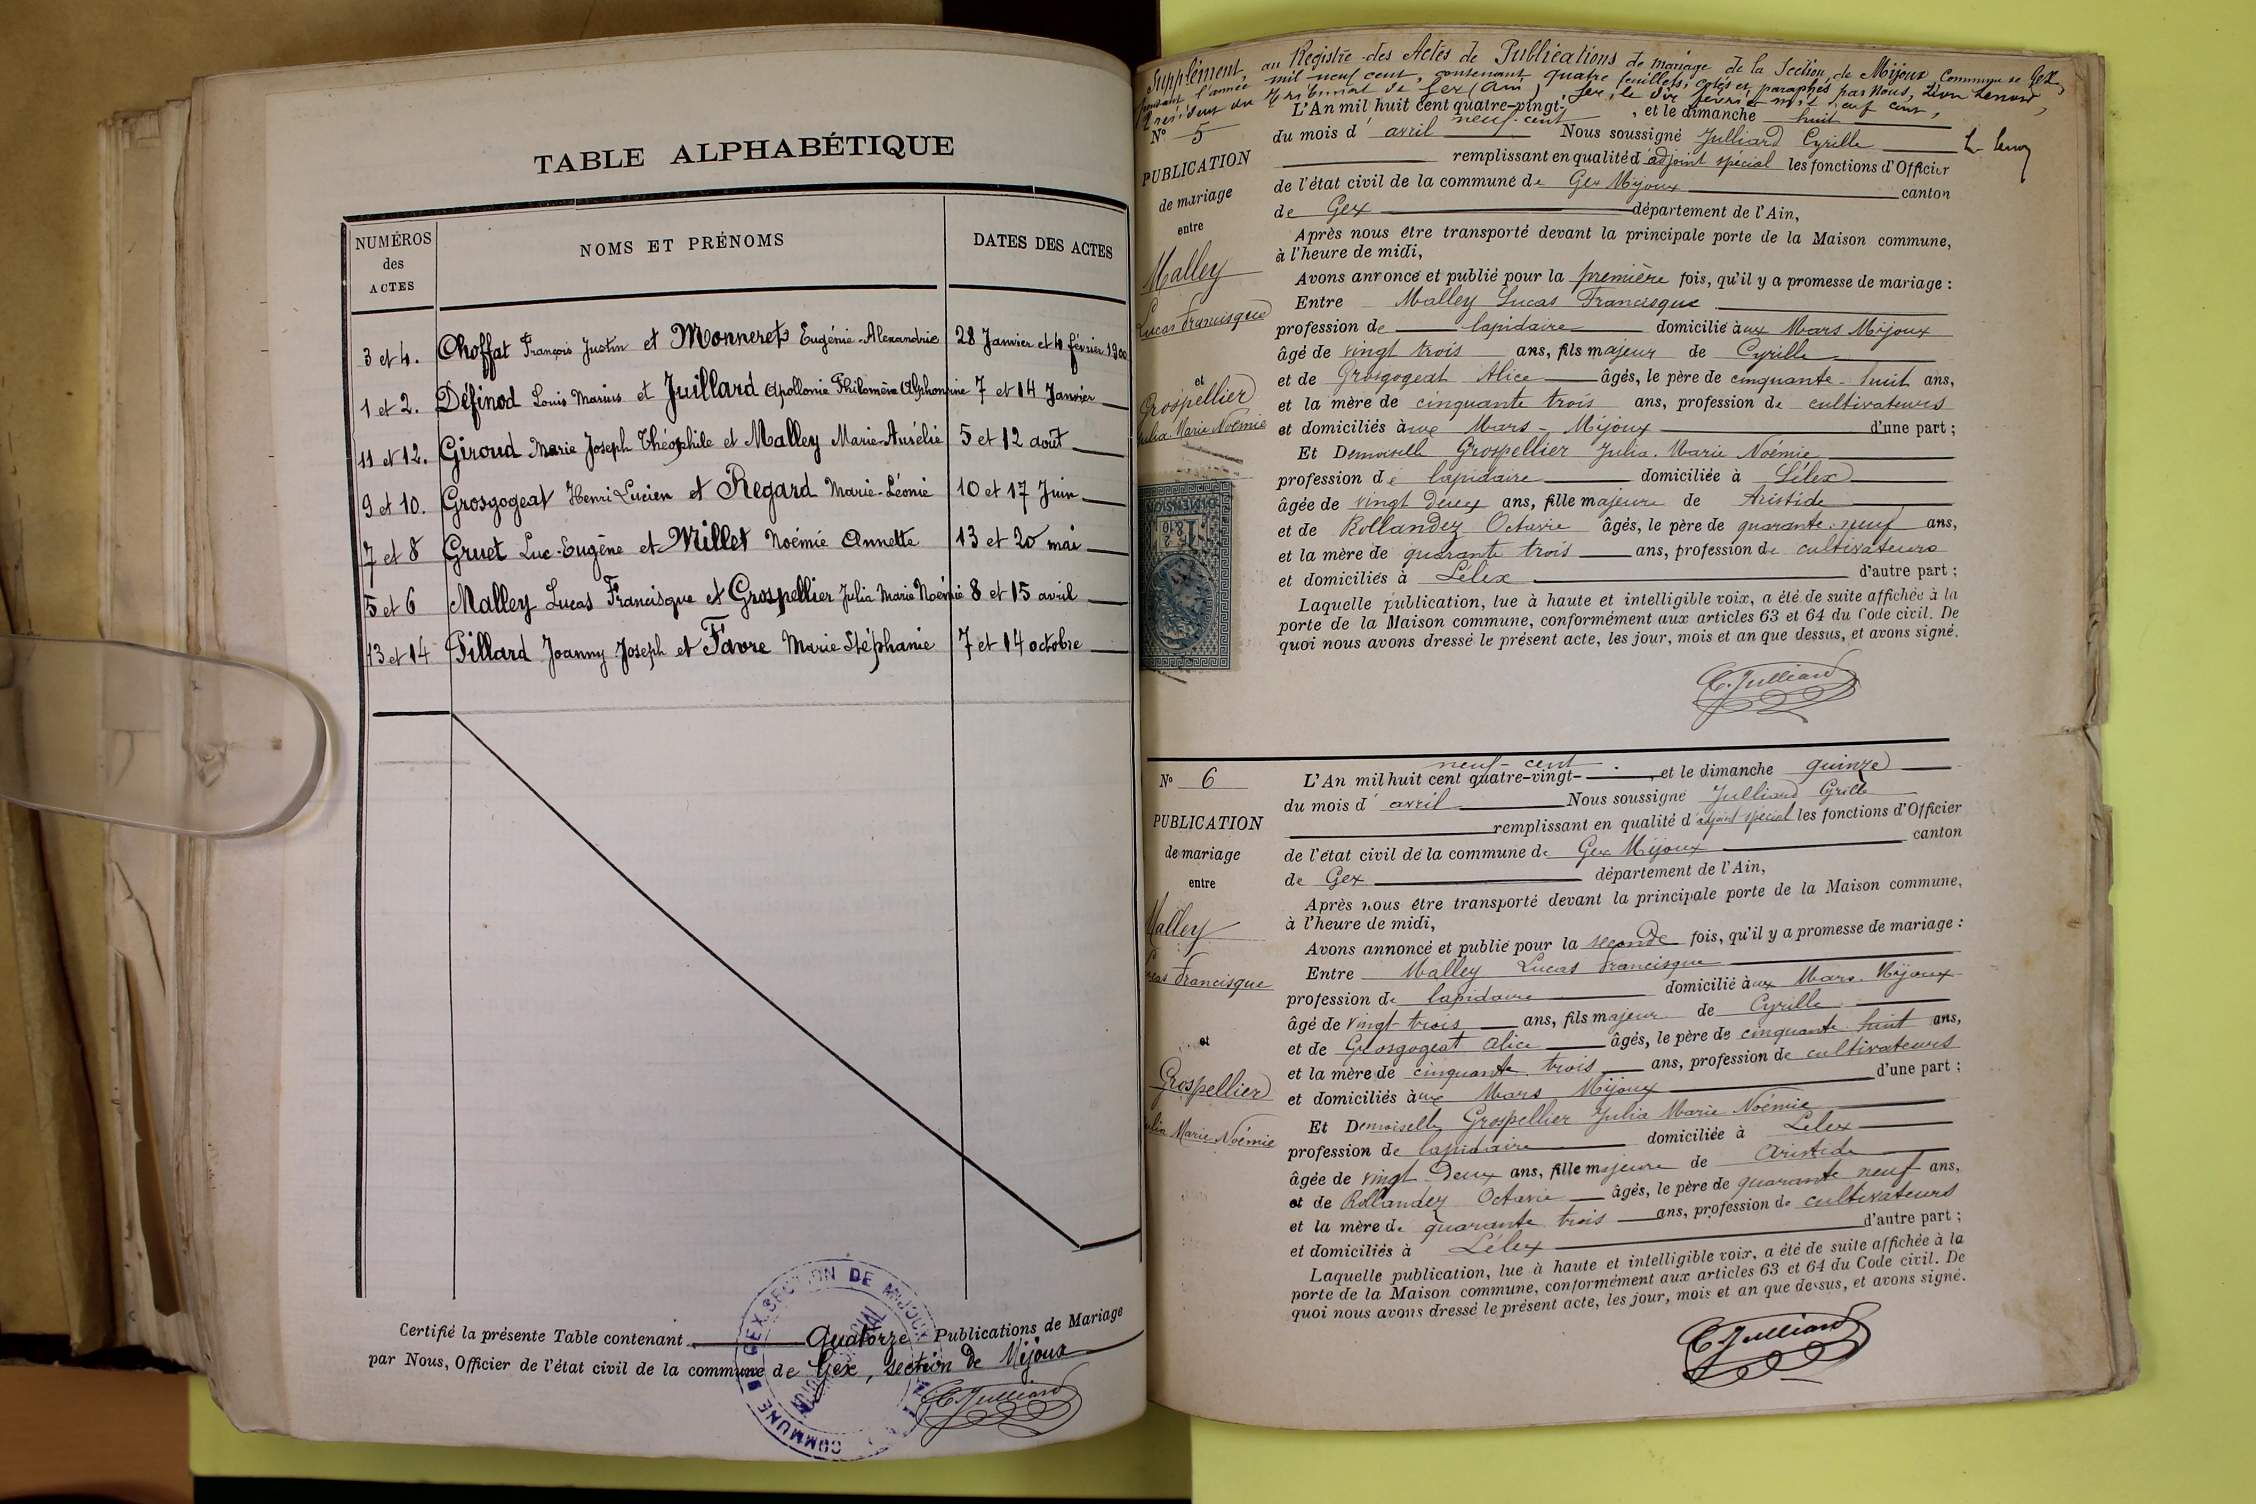 TABLE ALPHABÉTIQUE
NUMÉROS
des
ACTES
NOMS ET PRÉNOMS
DATES DES ACTES
3 et 4. Choffat François Justin et Monneret Eugénie-Alexandrie 28 Janvier et 4 février 1900
1 et 2. Définod Louis Marius et Juillard Apollonie Philomène Alphonsine 7 et 14 Janvier
11 et 12. Giroud Marie Joseph Théophile et Malley Marie-Aurélie 5 et 12 août
9 et 10. Grosgogeat Henri Lucien et Regard Marie-Léonie 10 et 17 Juin
7 et 8 Gruet Luc-Eugène et Millet Noémie Annette 13 et 20 mai
5 et 6 Malley Lucas Francisque et Grospellier Julia Marie Noémie 8 et 15 avril
13 et 14 Pillard Joanny Joseph et Favre Marie Stéphanie 7 et 14 octobre
Certifié la présente Table contenant Quatorze Publications de Mariage
par Nous, Officier de l'état civil de la commune de Gex, section de Mijoux
C. Julliard
COMMUNE DE GEX. SECTION DE MIJOUX
Supplément, au Registre des Actes de Publications de mariage de la Section de Mijoux, Commune de Gex,
pendant l'année mil neuf cent, contenant quatre feuillets, cotés et paraphés par Nous, Léon
Président du Tribunal de Gex (Ain), Gex, le dix février mil neuf cent,
N° 5
PUBLICATION
de mariage
entre
Malley
Lucas Francisque
et
Grospellier
Julia Marie Noémie
DIMENSION
L'An mil huit cent quatre-vingt- neuf-cent, et le dimanche huit
du mois d'avril Nous soussigné Julliard Cyrille
remplissant en qualité d'adjoint spécial les fonctions d'Officier
de l'état civil de la commune de Gex Mijoux canton
de Gex département de l'Ain,
Après nous être transporté devant la principale porte de la Maison commune,
à l'heure de midi,
Avons annoncé et publié pour la première fois, qu'il y a promesse de mariage :
Entre Malley Lucas Francisque
profession de lapidaire domicilié aux Mars Mijoux
âgé de vingt trois ans, fils majeur de Cyrille
et de Grosgogeat Alice âgés, le père de cinquante-huit ans,
et la mère de cinquante trois ans, profession de cultivateurs
et domiciliés aux Mars-Mijoux d'une part ;
Et Demoiselle Grospellier Julia Marie Noémie
profession de lapidaire domiciliée à Lélex
âgée de vingt deux ans, fille majeure de Aristide
et de Rollandez Octavie âgés, le père de quarante-neuf ans,
et la mère de quarante trois ans, profession de cultivateurs
et domiciliés à Lélex d'autre part ;
Laquelle publication, lue à haute et intelligible voix, a été de suite affichée à la
porte de la Maison commune, conformément aux articles 63 et 64 du Code civil. De
quoi nous avons dressé le présent acte, les jour, mois et an que dessus, et avons signé.
C. Julliard
N° 6
PUBLICATION
de mariage
entre
Malley
Lucas Francisque
et
Grospellier
Julia Marie Noémie
L'An mil huit cent quatre-vingt- neuf-cent, et le dimanche quinze
du mois d'avril Nous soussigné Julliard Cyrille
remplissant en qualité d'adjoint spécial les fonctions d'Officier
de l'état civil de la commune de Gex Mijoux canton
de Gex département de l'Ain,
Après nous être transporté devant la principale porte de la Maison commune,
à l'heure de midi,
Avons annoncé et publié pour la seconde fois, qu'il y a promesse de mariage :
Entre Malley Lucas Francisque
profession de lapidaire domicilié aux Mars Mijoux
âgé de vingt-trois ans, fils majeur de Cyrille
et de Grosgogeat Alice âgés, le père de cinquante huit ans,
et la mère de cinquante trois ans, profession de cultivateurs
et domiciliés aux Mars Mijoux d'une part ;
Et Demoiselle Grospellier Julia Marie Noémie
profession de lapidaire domiciliée à Lélex
âgée de vingt deux ans, fille majeure de Aristide
et de Rollandez Octavie âgés, le père de quarante neuf ans,
et la mère de quarante trois ans, profession de cultivateurs
et domiciliés à Lélex d'autre part ;
Laquelle publication, lue à haute et intelligible voix, a été de suite affichée à la
porte de la Maison commune, conformément aux articles 63 et 64 du Code civil. De
quoi nous avons dressé le présent acte, les jour, mois et an que dessus, et avons signé.
C. Julliard